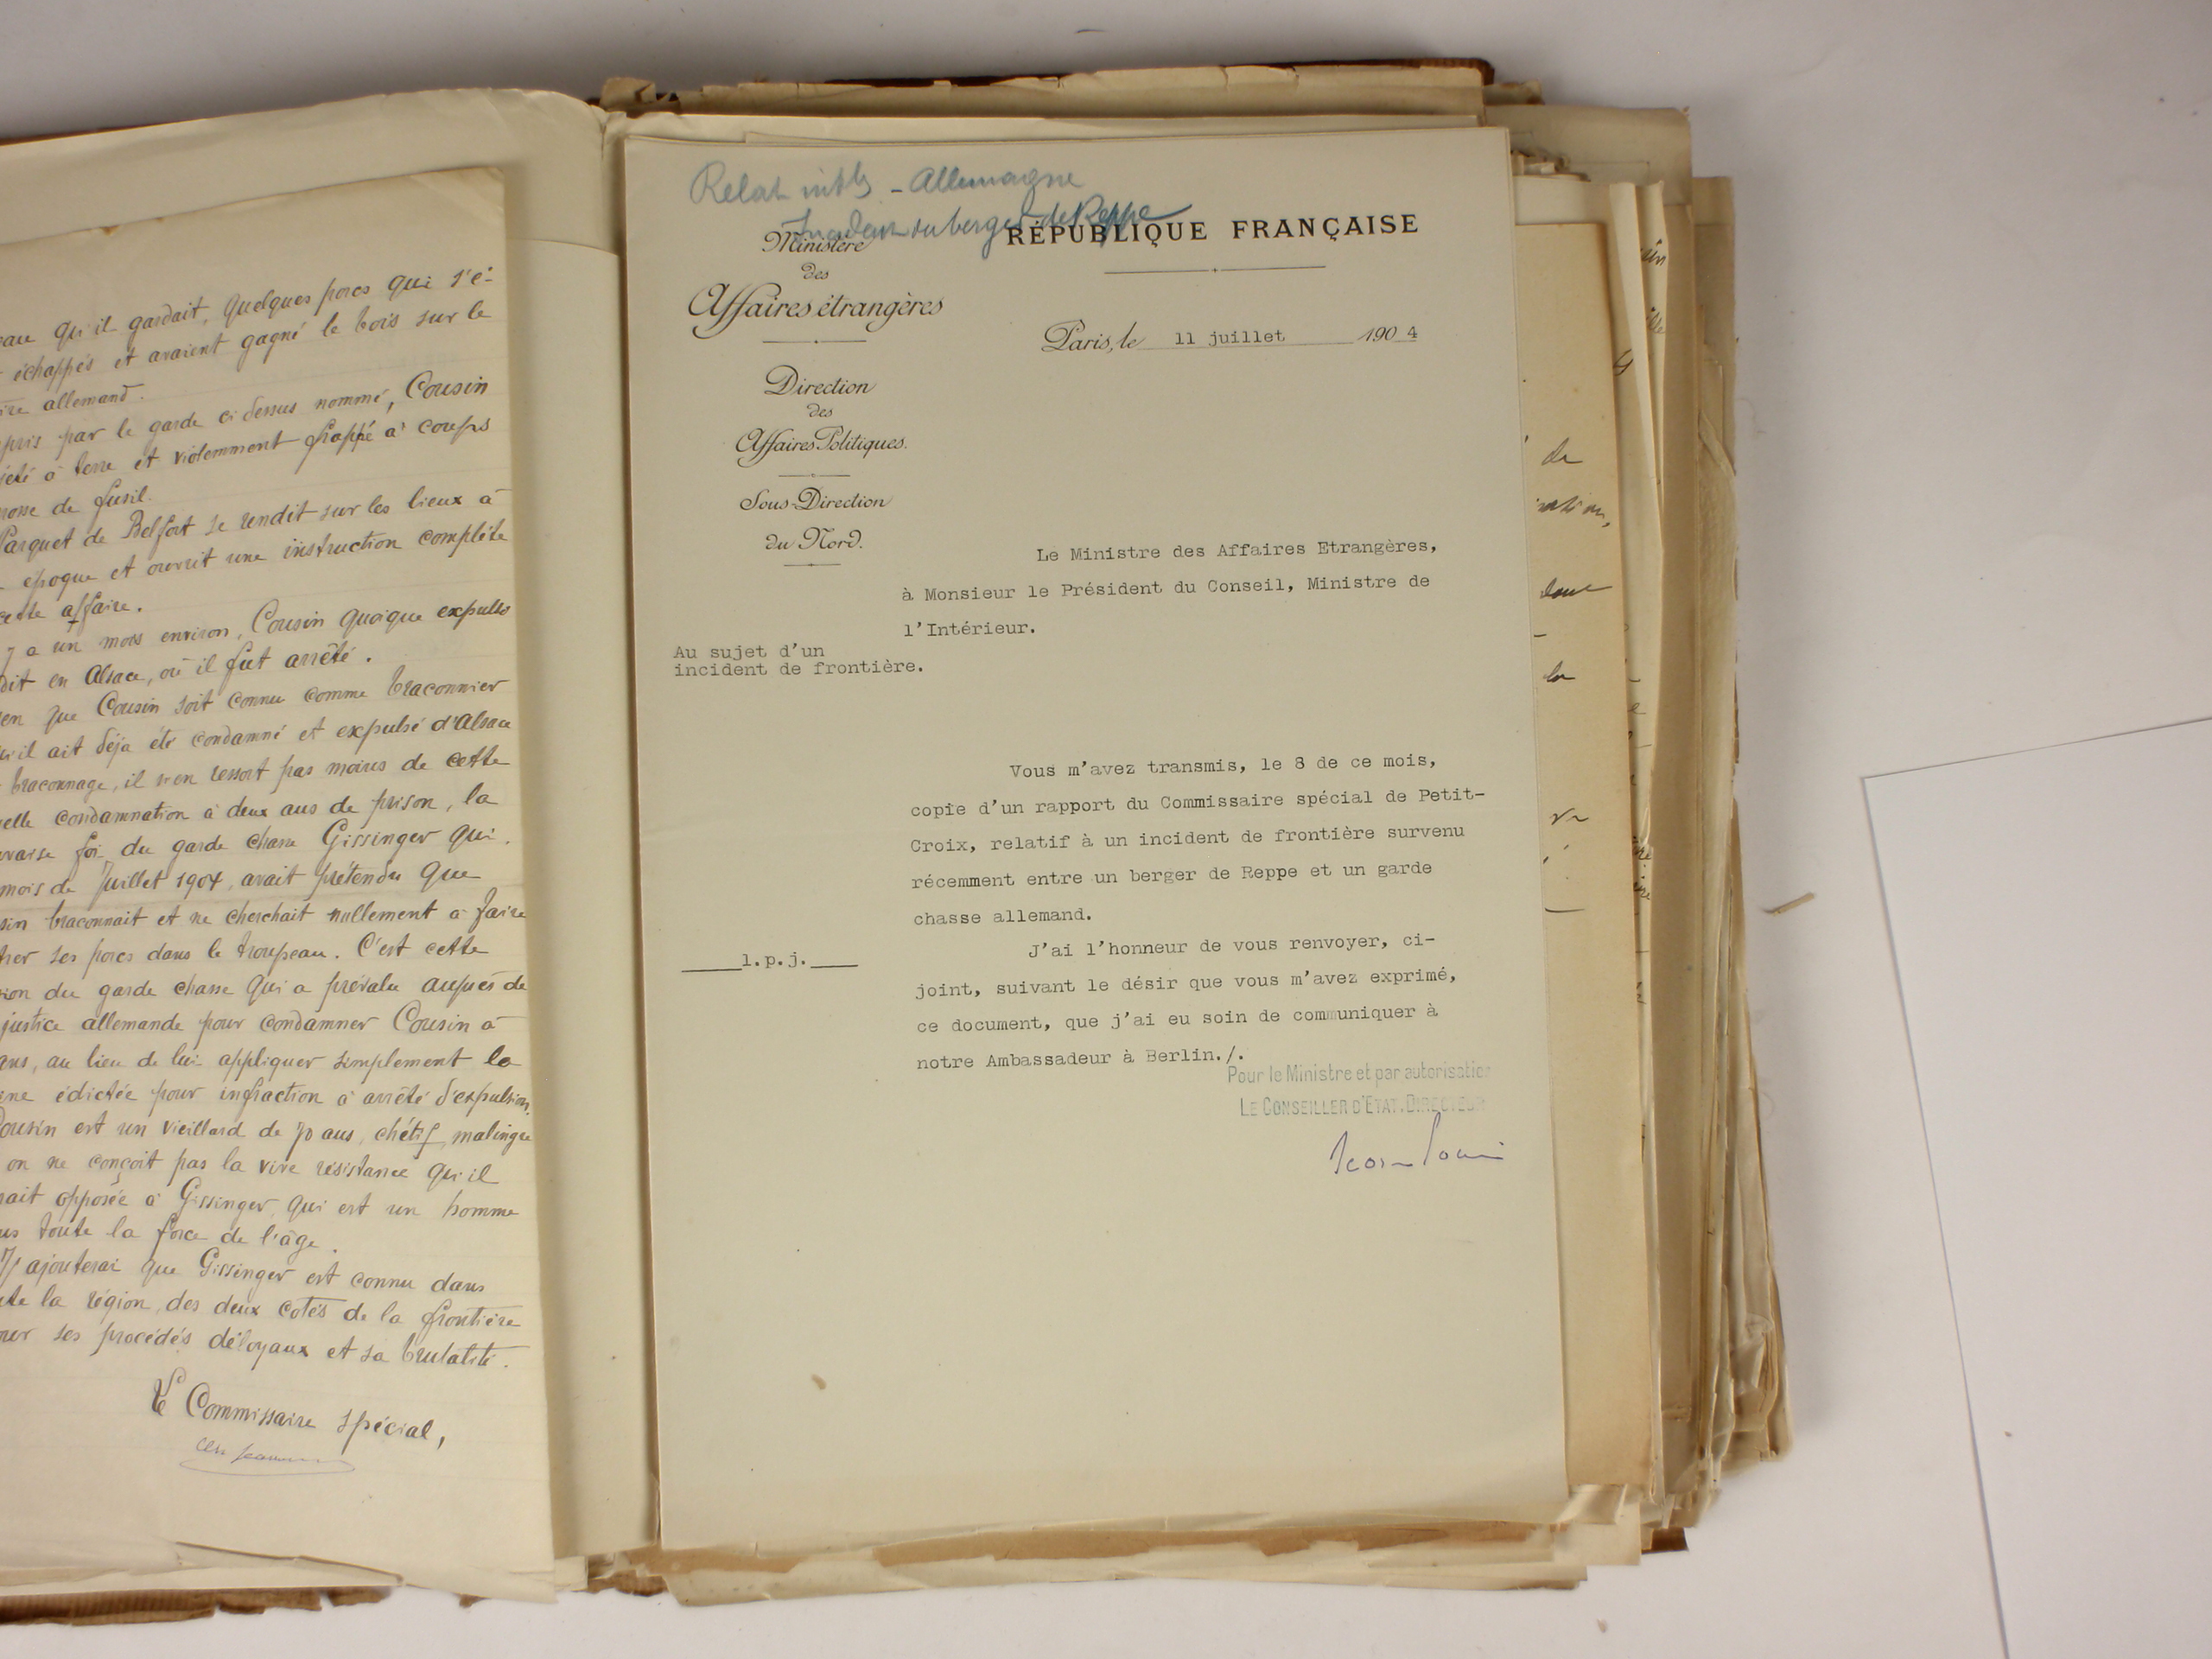 qu'il gardait, quelques porcs qui s'é-
échappés et avaient gagné le bois sur le
allemand.
pris par le garde ci dessus nommé, Cousin
à terre et violemment frappé à coups
de fusil.
Parquet de Belfort se rendit sur les lieux à
époque et ouvrit une instruction complète
cette affaire.
y a un mois environ, Cousin quoique expulsé
dit en Alsace, où il fut arrêté.
que Cousin soit connu comme braconnier
qu'il ait déja été condamné et expulsé d'Alsace
braconnage, il n'en ressort pas moins de cette
velle condamnation à deux ans de prison, la
vaise foi du garde chasse Gissinger qui,
mois de Juillet 1904, avait prétendu que
sin braconnait et ne cherchait nullement à faire
trer ses porcs dans le troupeau. C'est cette
sion du garde chasse qui a prévalu auprès de
justice allemande pour condamner Cousin à
ans, au lieu de lui appliquer simplement la
ine édictée pour infraction à arrêté d'expulsion.
Cousin est un vieillard de 70 ans, chétif, malingre
on ne conçoit pas la vive résistance qu'il
rait opposée à Gissinger, qui est un homme
ns toute la force de l'âge.
J'ajouterai que Gissinger est connu dans
te la région, des deux cotés de la frontière
our ses procédés déloyaux et sa brutalité.
Le Commissaire spécial,
Relat intles - Allemagne
Incident du berger de Reppe
RÉPUBLIQUE FRANÇAISE
Ministère
des
Affaires étrangères
Paris, le 11 juillet 1904
Direction
des
Affaires Politiques.
Sous-Direction
du Nord.
Le Ministre des Affaires Etrangères,
à Monsieur le Président du Conseil, Ministre de
l'Intérieur.
Au sujet d'un
incident de frontière.
Vous m'avez transmis, le 8 de ce mois,
copie d'un rapport du Commissaire spécial de Petit-
Croix, relatif à un incident de frontière survenu
récemment entre un berger de Reppe et un garde
chasse allemand.
J'ai l'honneur de vous renvoyer, ci-
1.p.j.
joint, suivant le désir que vous m'avez exprimé,
ce document, que j'ai eu soin de communiquer à
notre Ambassadeur à Berlin./.
Pour le Ministre et par autorisation
LE CONSEILLER D'ETAT. DIRECTEUR
de
la